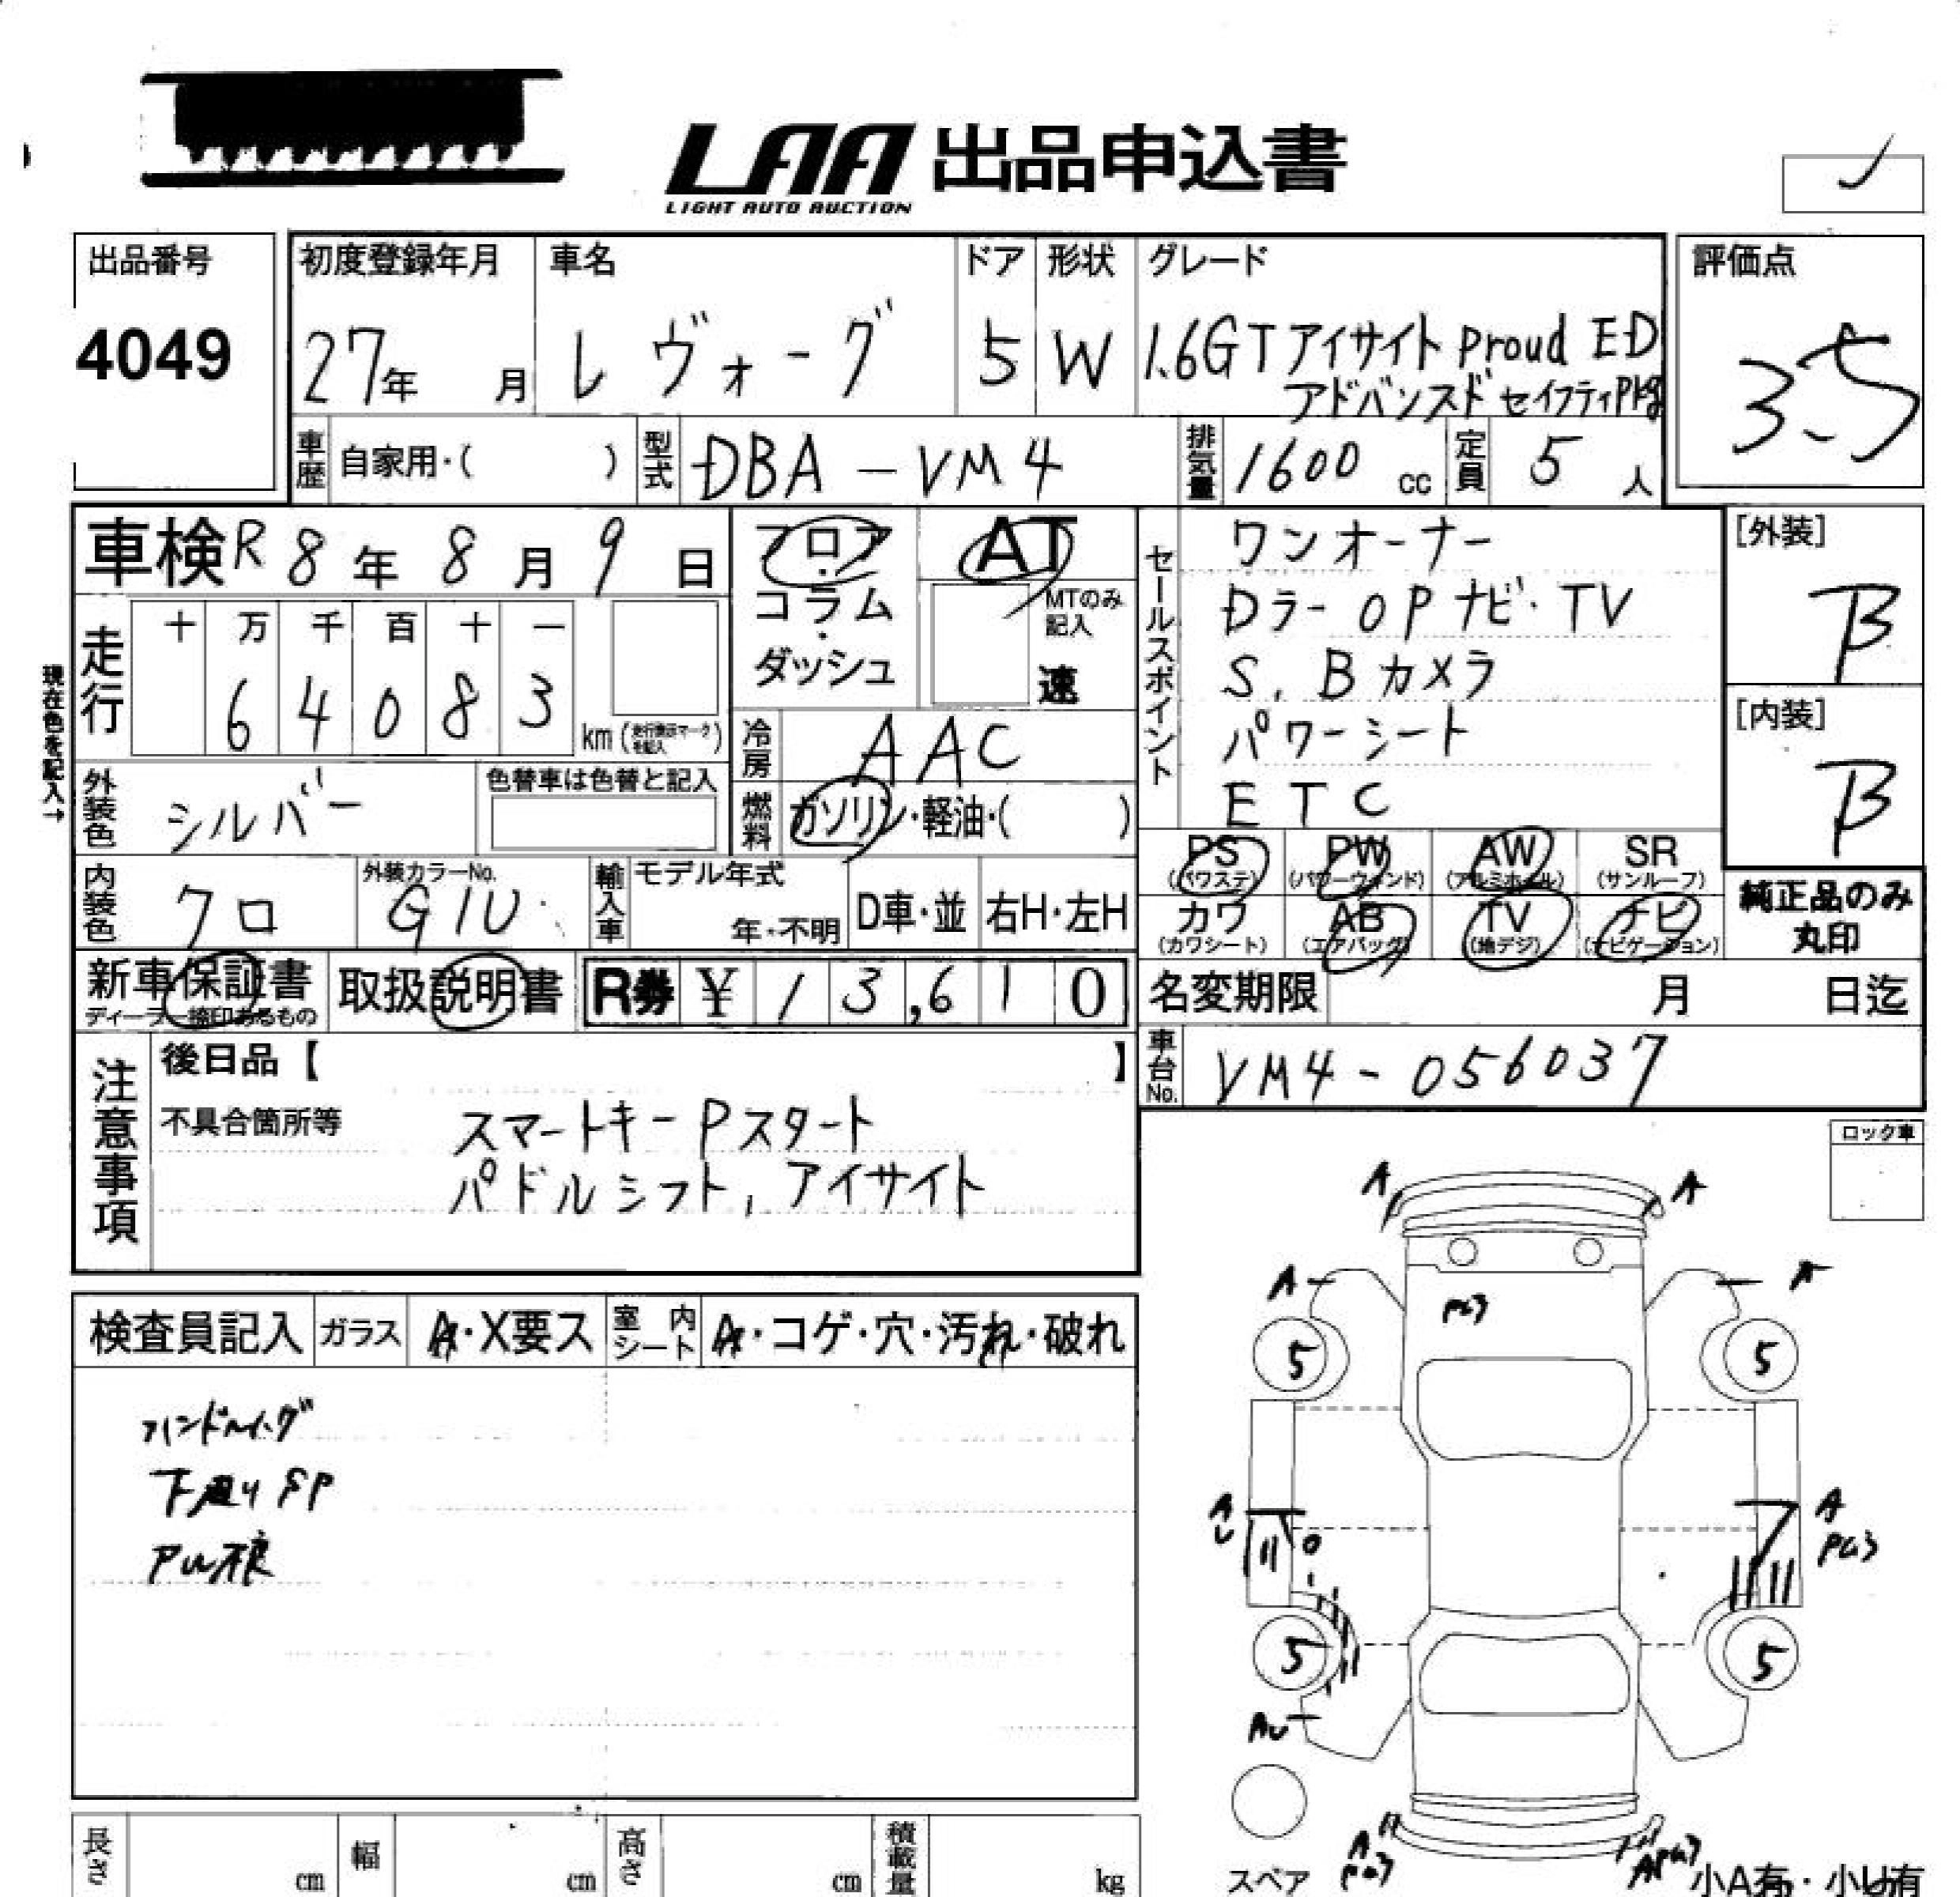 LAA 出品申込書
LIGHT AUTO AUCTION
出品番号
4049
初度登録年月
27年 月
車名
レヴォーグ
ドア
5
形状
W
グレード
1.6GTアイサイト Proud ED
アドバンスドセイフティPkg
評価点
3.5
車歴 自家用・( )
型式 DBA-VM4
排気量 1600 cc
定員 5 人
車検 R8年 8月 9日
フロア・コラム・ダッシュ
AT
MTのみ記入
速
セールスポイント
ワンオーナー
Dラー OPナビ・TV
S.Bカメラ
パワーシート
ETC
[外装]
B
[内装]
B
現在色を記入→
走行
十 万 千 百 十 一
6 4 0 8 3
km
冷房 AAC
外装色 シルバー
色替車は色替と記入
燃料 ガソリン・軽油・( )
PS (パワステ)
PW (パワーウィンド)
AW (アルミホイール)
SR (サンルーフ)
カワ (カワシート)
AB (エアバッグ)
TV (地デジ)
ナビ (ナビゲーション)
純正品のみ丸印
内装色 クロ
外装カラーNo.
G1U
輸入車
モデル年式
年・不明
D車・並
右H・左H
新車保証書
ディーラー捺印あるもの
取扱説明書
R券 ¥ 13,610
名変期限 月 日迄
車台No. VM4-056037
注意事項
後日品【 】
不具合箇所等
スマートキー Pスタート
パドルシフト, アイサイト
ロック車
検査員記入
ガラス A・X要ス
室内シート A・コゲ・穴・汚れ・破れ
下廻りSP
A
A
A
A
PG3
5
5
A
U
A
PG3
5
5
AU
スペア
A
PG3
APG3
小A有・小U有
長さ cm
幅 cm
高さ cm
積載量 kg